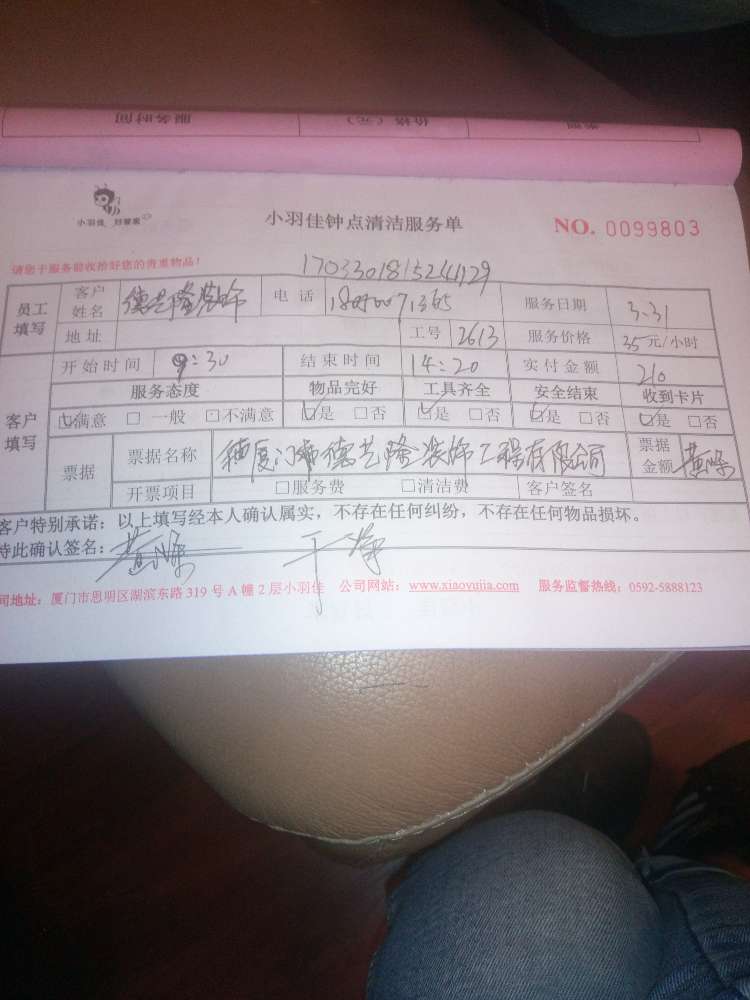 服务时间 价格（元）
小羽佳 好管家
小羽佳钟点清洁服务单 NO. 0099803
请您于服务前收拾好您的贵重物品！
员工填写 客户姓名 德艺隆装饰 电话 服务日期 3-31
地址 工号 2613 服务价格 35元/小时
开始时间 9:30 结束时间 14:20 实付金额 210
服务态度 物品完好 工具齐全 安全结束 收到卡片
客户填写 ☑满意 □一般 □不满意 ☑是 □否 ☑是 □否 ☑是 □否 ☑是 □否
票据 票据名称 厦门市德艺隆装饰工程有限公司 票据金额
开票项目 □服务费 □清洁费 客户签名
客户特别承诺：以上填写经本人确认属实，不存在任何纠纷，不存在任何物品损坏。
特此确认签名：
司地址：厦门市思明区湖滨东路319号A幢2层小羽佳 公司网站：www.xiaoyujia.com 服务监督热线：0592-5888123